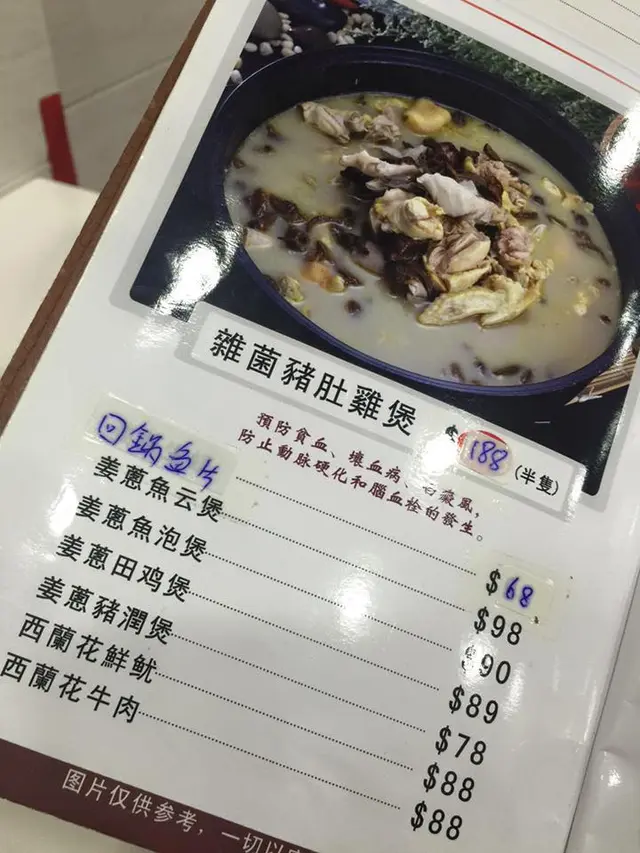 雜菌豬肚雞煲 $188 (半隻)
預防貧血、壞血病、白癜風，
防止動脈硬化和腦血栓的發生。
回鍋鱼片 $68
姜蔥魚云煲 $98
姜蔥魚泡煲 $90
姜蔥田鸡煲 $89
姜蔥豬潤煲 $78
西蘭花鮮鱿 $88
西蘭花牛肉 $88
图片仅供参考，一切以